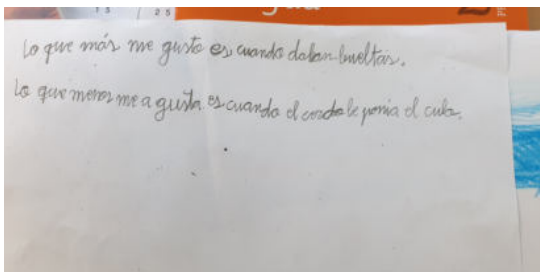 13 25
Lo que más me gusto es cuando daban bueltas.
Lo que menos me a gusta es cuando el cerdo le ponia el culo.